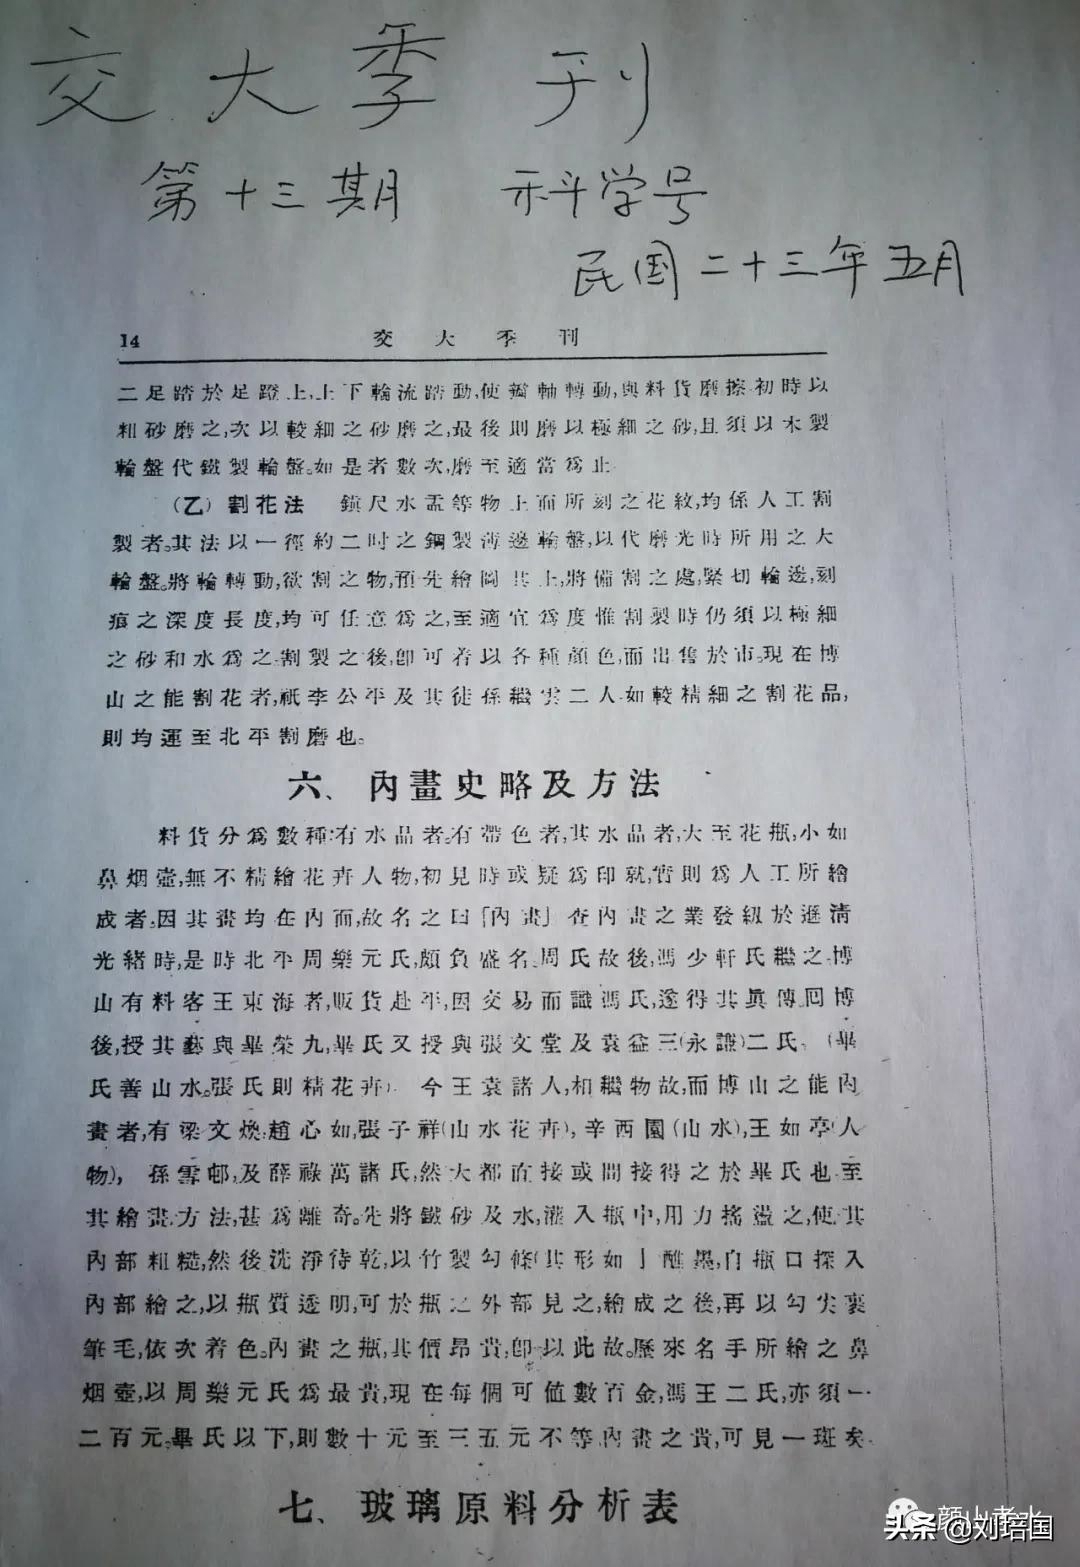 交大季刊
第十三期 科学号
民国二十三年五月
14 交大季刊
二足踏於足蹬上,上下輪流踏動,使瓣軸轉動,與料貨磨擦,初時以
粗砂磨之,次以較細之砂磨之,最後則磨以極細之砂,且須以木製
輪盤代鐵製輪盤。如是者數次,磨至適當為止
(乙) 割花法 鎮尺水盂等物上面所刻之花紋,均係人工割
製者。其法以一徑約二吋之鋼製薄邊輪盤,以代磨光時所用之大
輪盤。將輪轉動,欲割之物,預先繪圖其上,將備割之處,緊切輪邊,刻
痕之深度長度,均可任意為之,至適宜為度惟割製時仍須以極細
之砂和水為之.割製之後,卽可着以各種顏色,而出售於市。現在博
山之能割花者,祇李公平及其徒孫繼雲二人.如較精細之割花品,
則均運至北平割磨也。
六、內畫史略及方法
料貨分為數種:有水晶者。有帶色者,其水晶者,大至花瓶,小如
鼻烟壺,無不精繪花卉人物,初見時或疑為印就,實則為人工所繪
成者。因其畫均在內面,故名之曰「內畫」查內畫之業發軔於遜清
光緒時,是時北平周樂元氏,頗負盛名.周氏故後,馮少軒氏繼之.博
山有料客王東海者,販貨赴平,因交易而識馮氏,遂得其眞傳.回博
後,授其藝與畢榮九,畢氏又授與張文堂及袁益三(永謙)二氏. (畢
氏善山水。張氏則精花卉) 今王袁諸人,相繼物故,而博山之能內
畫者,有梁文煥,趙心如,張子祥(山水花卉),辛酉園(山水),王如亭(人
物), 孫雪邨,及薛祿萬諸氏,然大都直接或間接得之於畢氏也.至
其繪畫方法,甚為離奇。先將鐵砂及水,灌入瓶中,用力搖盪之,使其
內部粗糙,然後洗淨待乾,以竹製勾條(其形如亅醮墨,自瓶口探入
內部繪之,以瓶質透明,可於瓶之外部見之,繪成之後,再以勾尖裹
筆毛,依次着色。內畫之瓶,其價昂貴,卽以此故。歷來名手所繪之鼻
烟壺,以周樂元氏為最貴,現在每個可值數百金,馮王二氏,亦須一
二百元。畢氏以下,則數十元至三五元不等.內畫之貴,可見一斑矣.
七、玻璃原料分析表
顏山孝水
头条 @刘培国